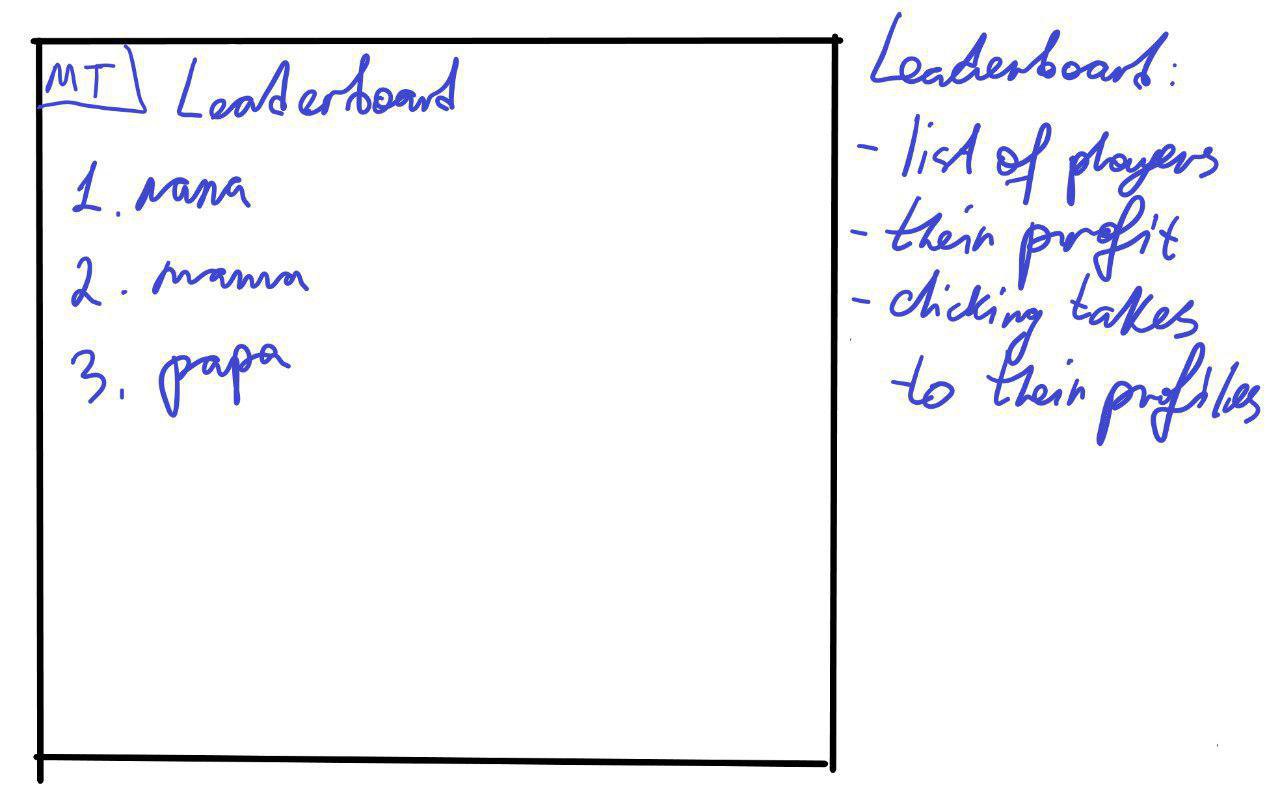 MT Leaderboard
1. nana
2. mama
3. papa
Leaderboard:
- list of players
- their profit
- clicking takes
to their profiles